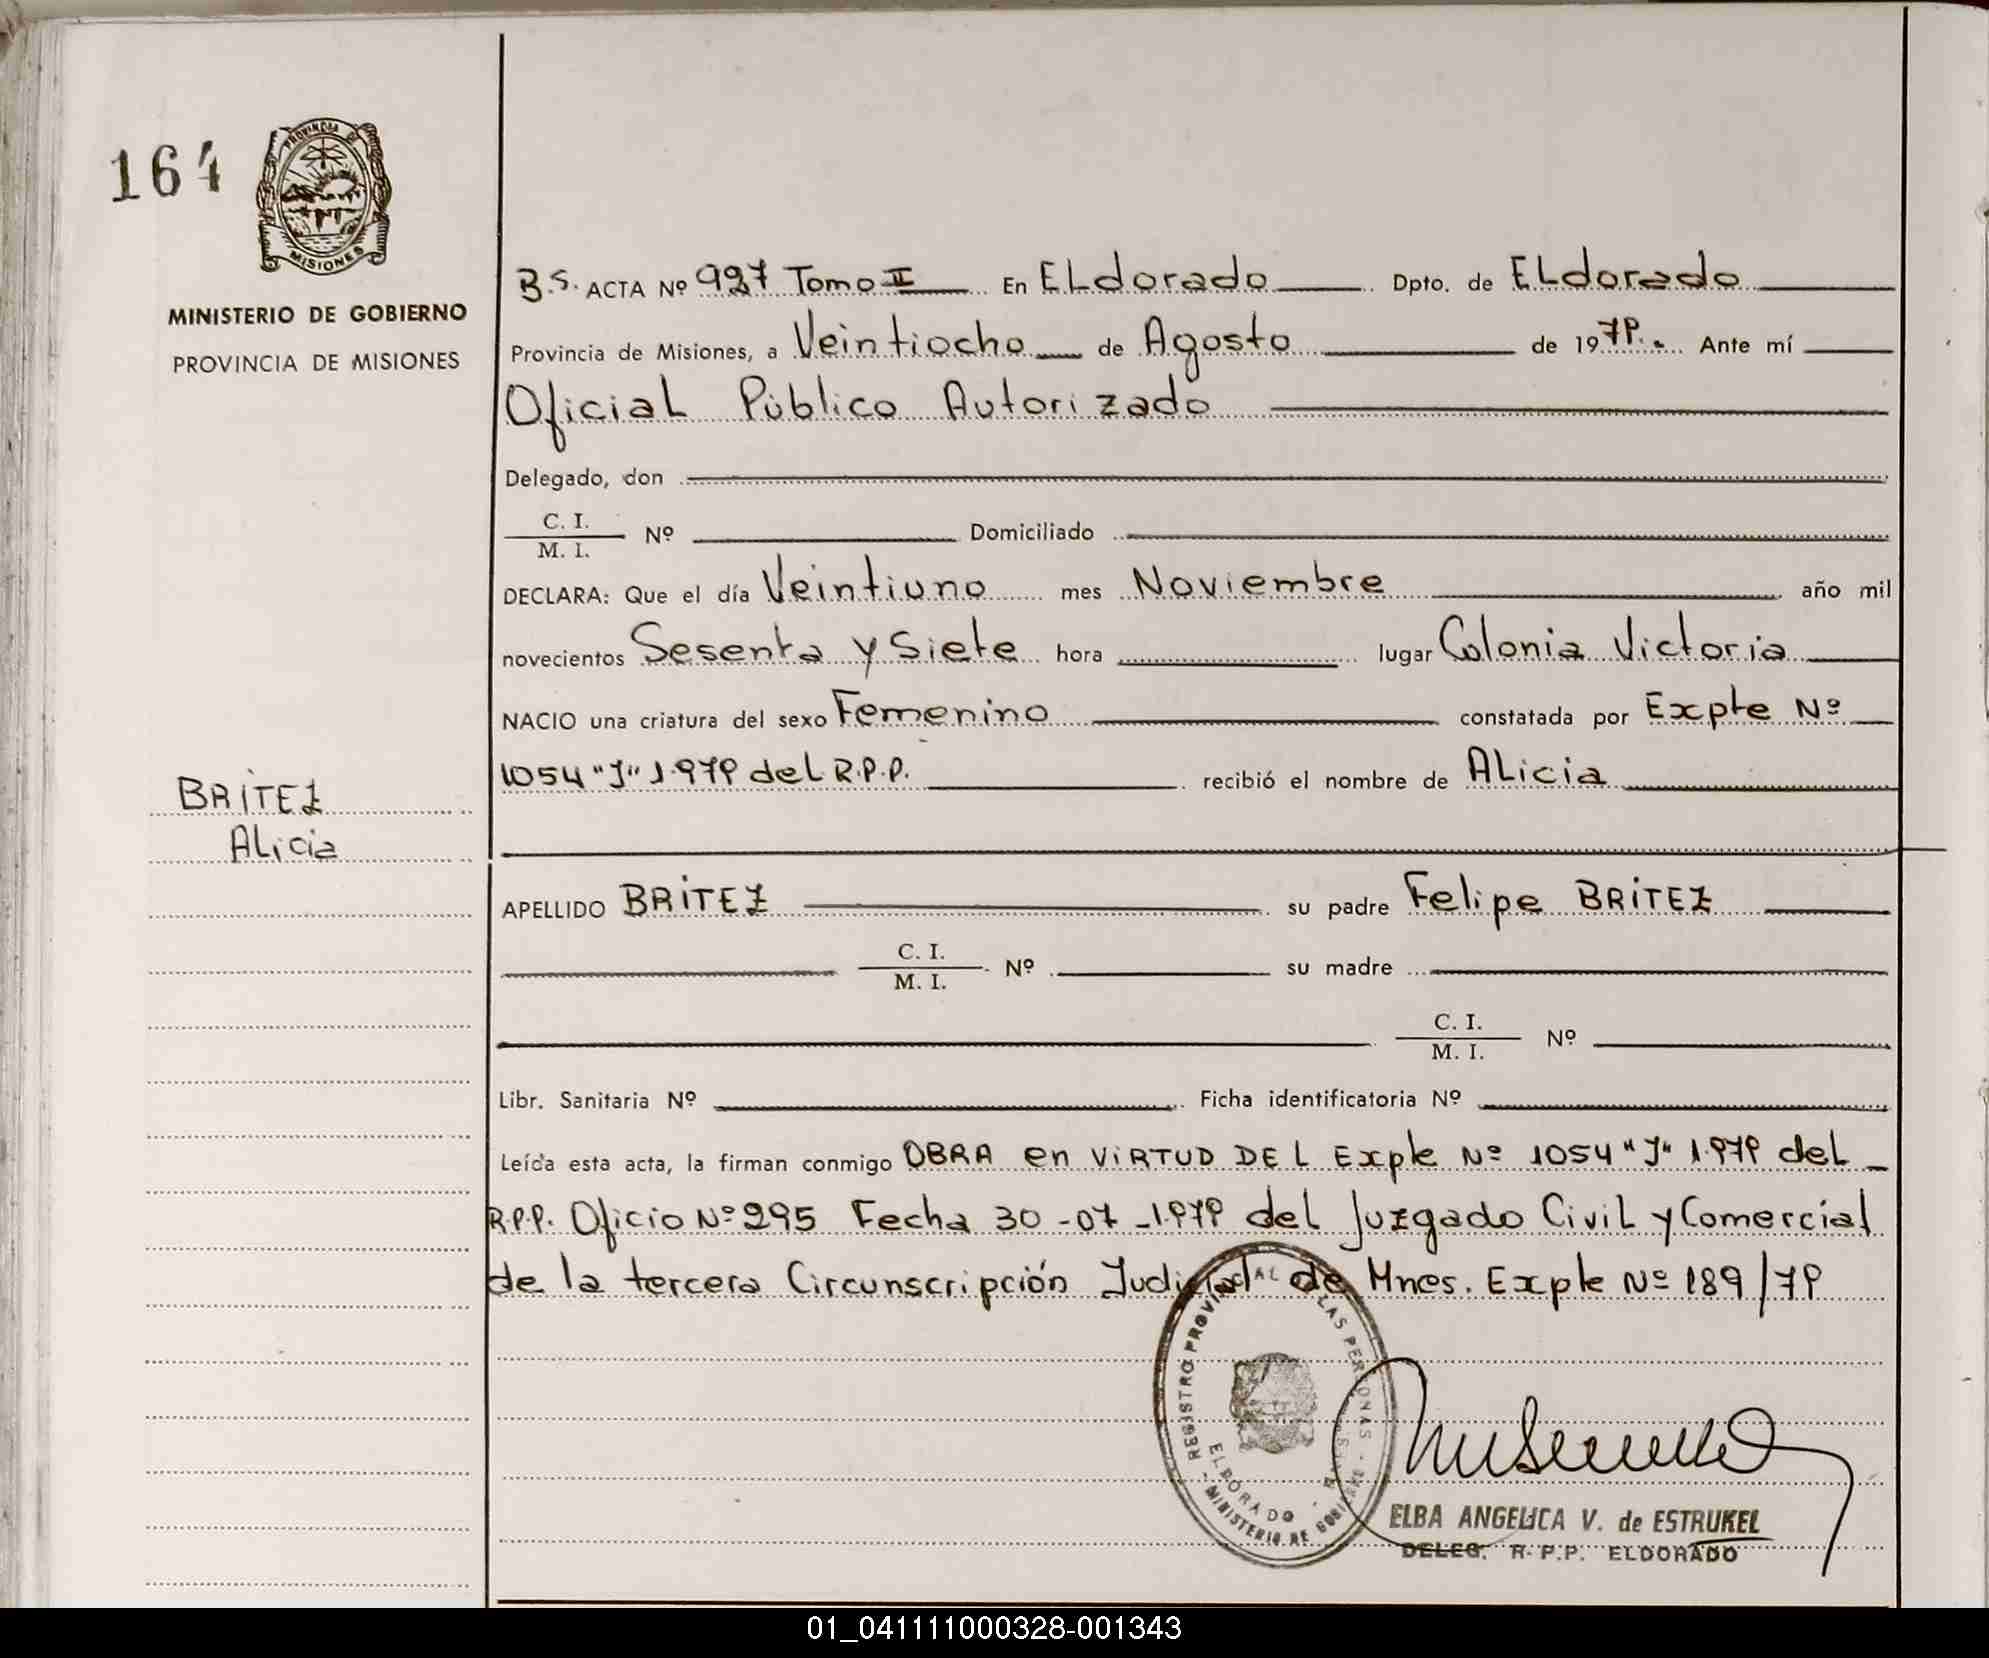 164
PROVINCIA DE
MISIONES
MINISTERIO DE GOBIERNO
PROVINCIA DE MISIONES
B.S. ACTA Nº 927 Tomo II En ELdorado Dpto. de ELdorado
Provincia de Misiones, a Veintiocho de Agosto de 1979. Ante mí
Oficial Público Autorizado
Delegado, don
C. I.
M. I. Nº Domiciliado
DECLARA: Que el día Veintiuno mes Noviembre año mil
novecientos Sesenta y Siete hora lugar Colonia Victoria
NACIO una criatura del sexo Femenino constatada por Expte Nº
1054 "J" 1.979 del R.P.P. recibió el nombre de ALicia
BRITEZ
ALicia
APELLIDO BRITEZ su padre Felipe BRITEZ
C. I.
M. I. Nº su madre
C. I.
M. I. Nº
Libr. Sanitaria Nº Ficha identificatoria Nº
Leída esta acta, la firman conmigo OBRA en VIRTUD DEL Expte Nº 1054 "J" 1.979 del
R.P.P. Oficio Nº 295 Fecha 30-07-1.979 del Juzgado Civil y Comercial
de la tercera Circunscripción Judicial de Mnes. Expte Nº 189/79
REGISTRO PROVINCIAL DE LAS PERSONAS
ELDORADO
MINISTERIO DE GOBIERNO
ELBA ANGELICA V. de ESTRUKEL
DELEG. R.P.P. ELDORADO
01_041111000328-001343